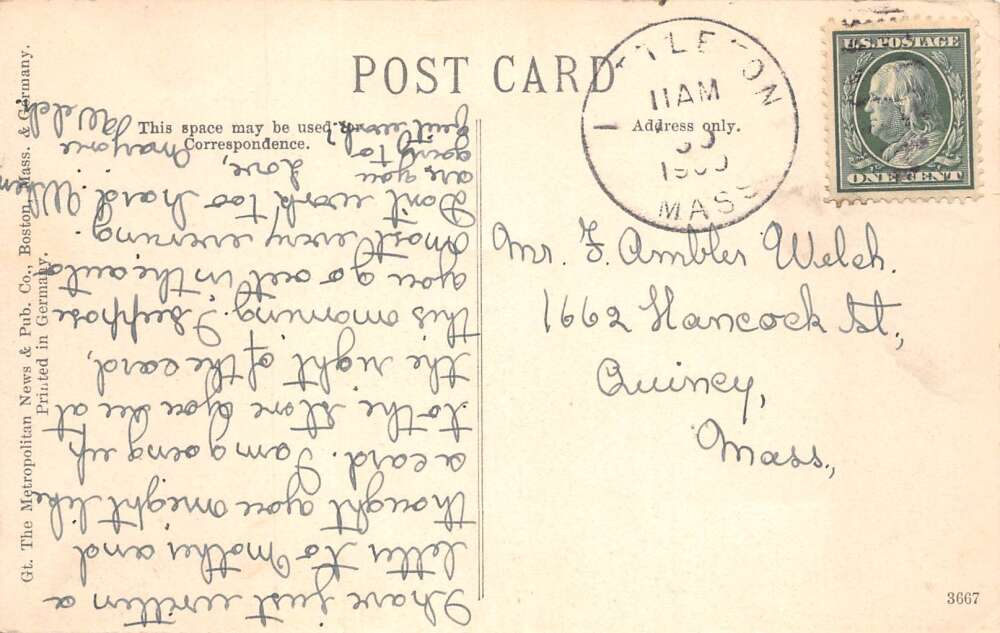 POST CARD
This space may be used for
Correspondence.
Address only.
LITTLETON
11AM
30
MASS
U.S. POSTAGE
ONE CENT
Mr. F. Ambler Welch.
1662 Hancock St.,
Quincy,
Mass.,
I have just written a
letter to Mother and
thought you might like
a card. I am going up
to the store you see at
the right of the card,
this morning. I suppose
you go out in the auto
most every evening.
Don't work too hard. When
are you
going to
quit work?
Love,
Marjorie
Welch
Gt. The Metropolitan News & Pub. Co., Boston, Mass. & Germany.
Printed in Germany.
3667